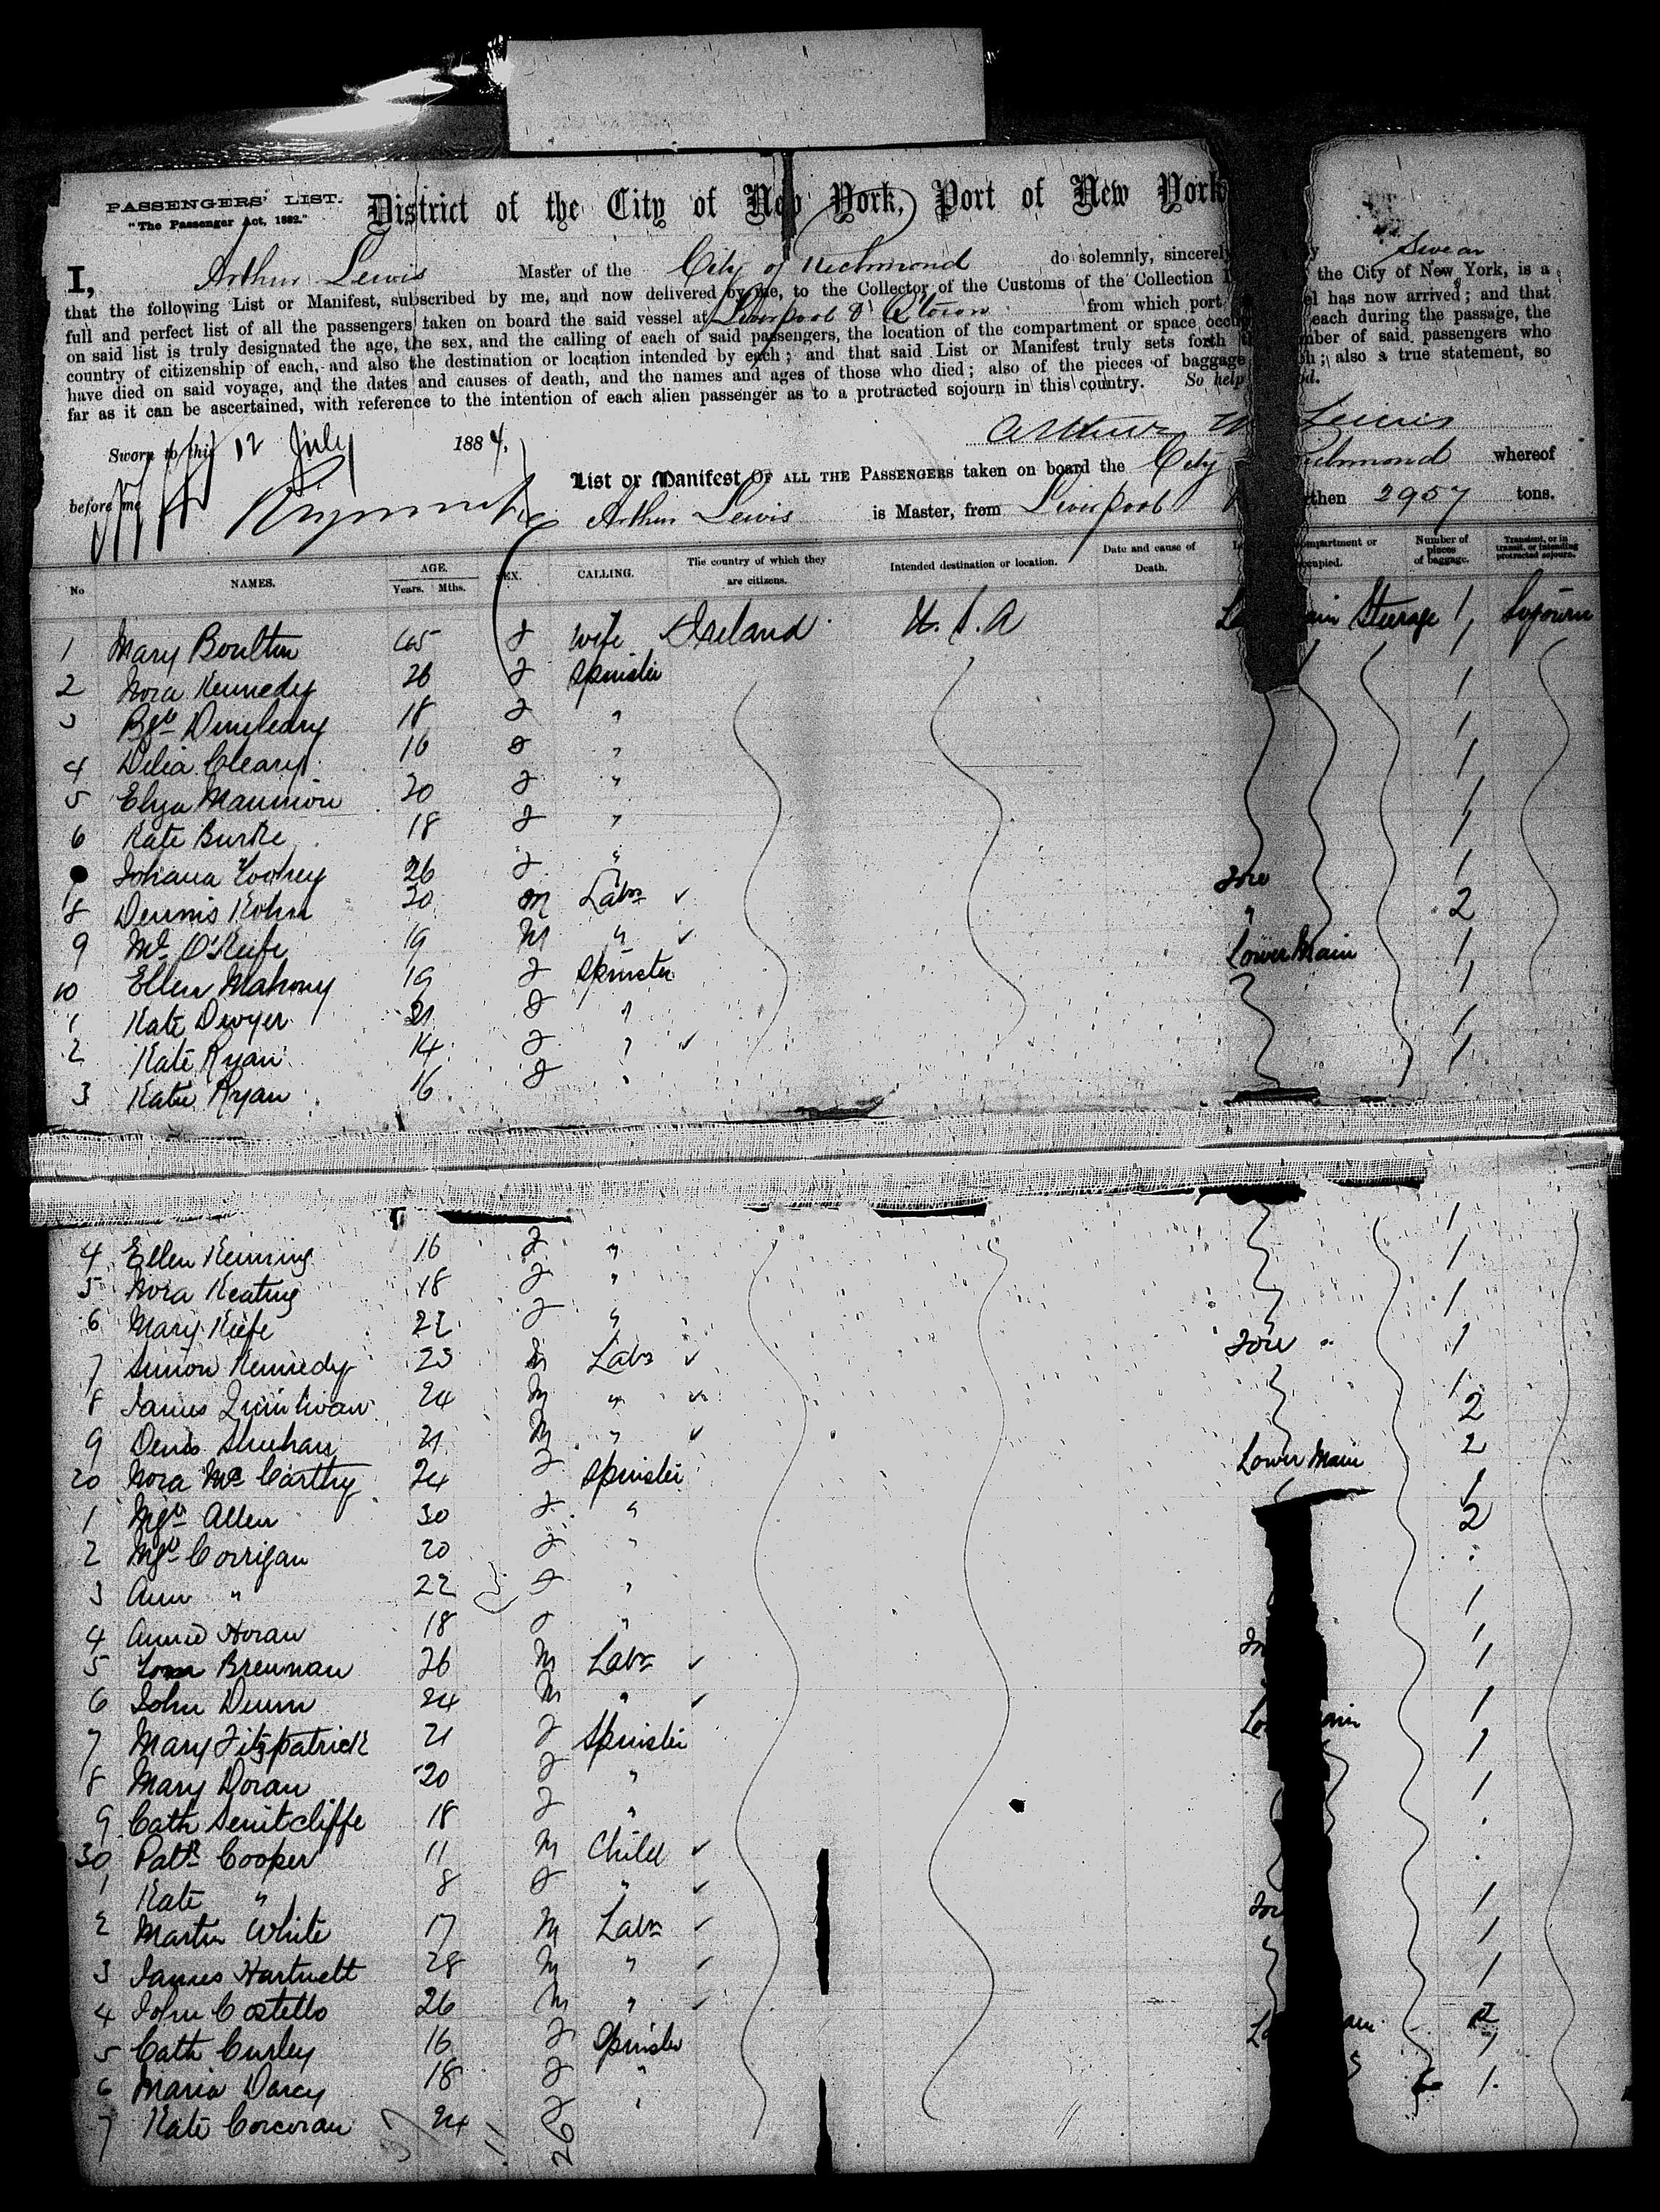 PASSENGERS' LIST.
"The Passenger Act, 1882."
District of the City of New York, Port of New York
I, Arthur Lewis Master of the City of Richmond do solemnly, sincerely Swear
that the following List or Manifest, subscribed by me, and now delivered by me, to the Collector of the Customs of the Collection the City of New York, is a
full and perfect list of all the passengers taken on board the said vessel at Liverpool & Qtown from which port has now arrived; and that
on said list is truly designated the age, the sex, and the calling of each of said passengers, the location of the compartment or space each during the passage, the
country of citizenship of each, and also the destination or location intended by each; and that said List or Manifest truly sets forth of said passengers who
have died on said voyage, and the dates and causes of death, and the names and ages of those who died; also of the pieces of baggage also a true statement, so
far as it can be ascertained, with reference to the intention of each alien passenger as to a protracted sojourn in this country. So help
Sworn to this 12 July 1884,
Arthur Lewis
before me
List or Manifest OF ALL THE PASSENGERS taken on board the City Richmond whereof
Arthur Lewis is Master, from Liverpool burthen 2957 tons.
No NAMES. AGE. Years. Mths. SEX. CALLING. The country of which they are citizens. Intended destination or location. Date and cause of Death. compartment or occupied. Number of pieces of baggage. Transient, or in transit, or intending protracted sojourn.
1 Mary Boulton 65 f Wife Ireland U.S.A Steerage 1 Sojourn
2 Nora Kennedy 26 f Spinster 1
3 Bgt 18 f " 1
4 Delia Cleary 16 f " 1
5 Eliza Mannion 20 f " 1
6 Kate Burke 18 f " 1
Johana Toohey 26 f " 1
8 Dennis 30 M Labr Fore 2
9 Ml O'Keefe 19 M " "
10 Ellen Mahony 19 f Spinster Lower Main 1
1 Kate Dwyer 21 f " 1
2 Kate Ryan 14 f " 1
3 Kate Ryan 16 f " 1
4 Ellen 16 f " 1
5 Nora Keating 18 f " 1
6 Mary Keefe 22 f " 1
7 Simon Kennedy 23 M Labr Fore " 1
8 James Quinlivan 24 M " 1
9 Denis Sheehan 21 M " 2
20 Nora Mc Carthy 24 f Spinster Lower Main 2
1 Mgt Allen 30 f " 1
2 Mgt Corrigan 20 f " 2
3 Ann " 22 f "
4 Annie Horan 18 f " 1
5 Tom Brennan 26 M Labr 1
6 John Dunn 24 M " 1
7 Mary Fitzpatrick 21 f Spinster 1
8 Mary Doran 20 f " 1
9 Cath 18 f " 1
30 Patk Cooper 11 M Child
1 Kate " 8 f "
2 Martin White 17 M Labr 1
3 James Hartnett 28 M " 1
4 John Costello 26 M " 1
5 Cath Curley 16 f Spinster
6 Maria Darcy 18 f " 1
7 Kate Corcoran 24 f " 1
37 11 26